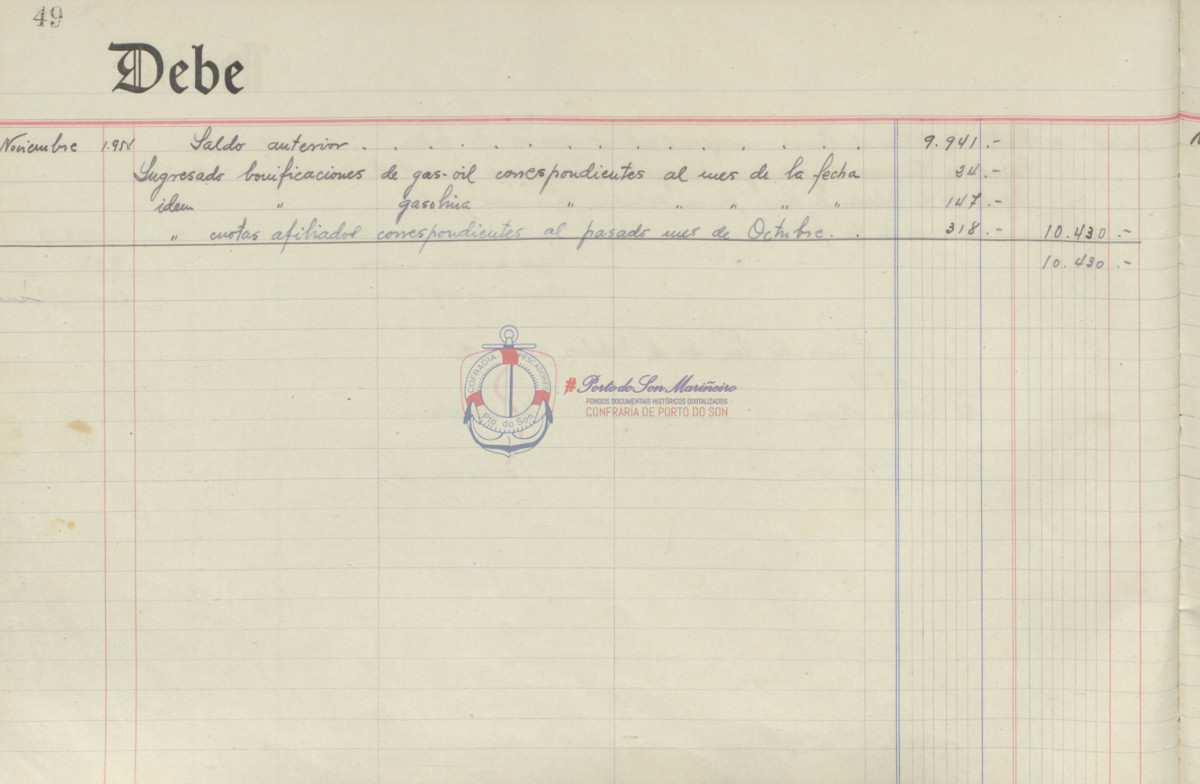 49
Debe
Noviembre 1.954 Saldo anterior . . . . . . . . . . . . . . . . 9.941.-
Ingresado bonificaciones de gas-oil correspondientes al mes de la fecha 24.-
idem " gasolina " " " " " 147.-
" cuotas afiliados correspondientes al pasado mes de Octubre. . 318.- 10.430.-
10.430.-
COFRADIA PESCADORES
Pto. do Son
#Porto do Son Mariñeiro
FONDOS DOCUMENTAIS HISTÓRICOS DIXITALIZADOS
CONFRARÍA DE PORTO DO SON